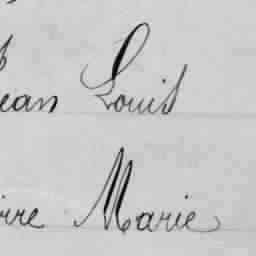 ean Louis
rre Marie